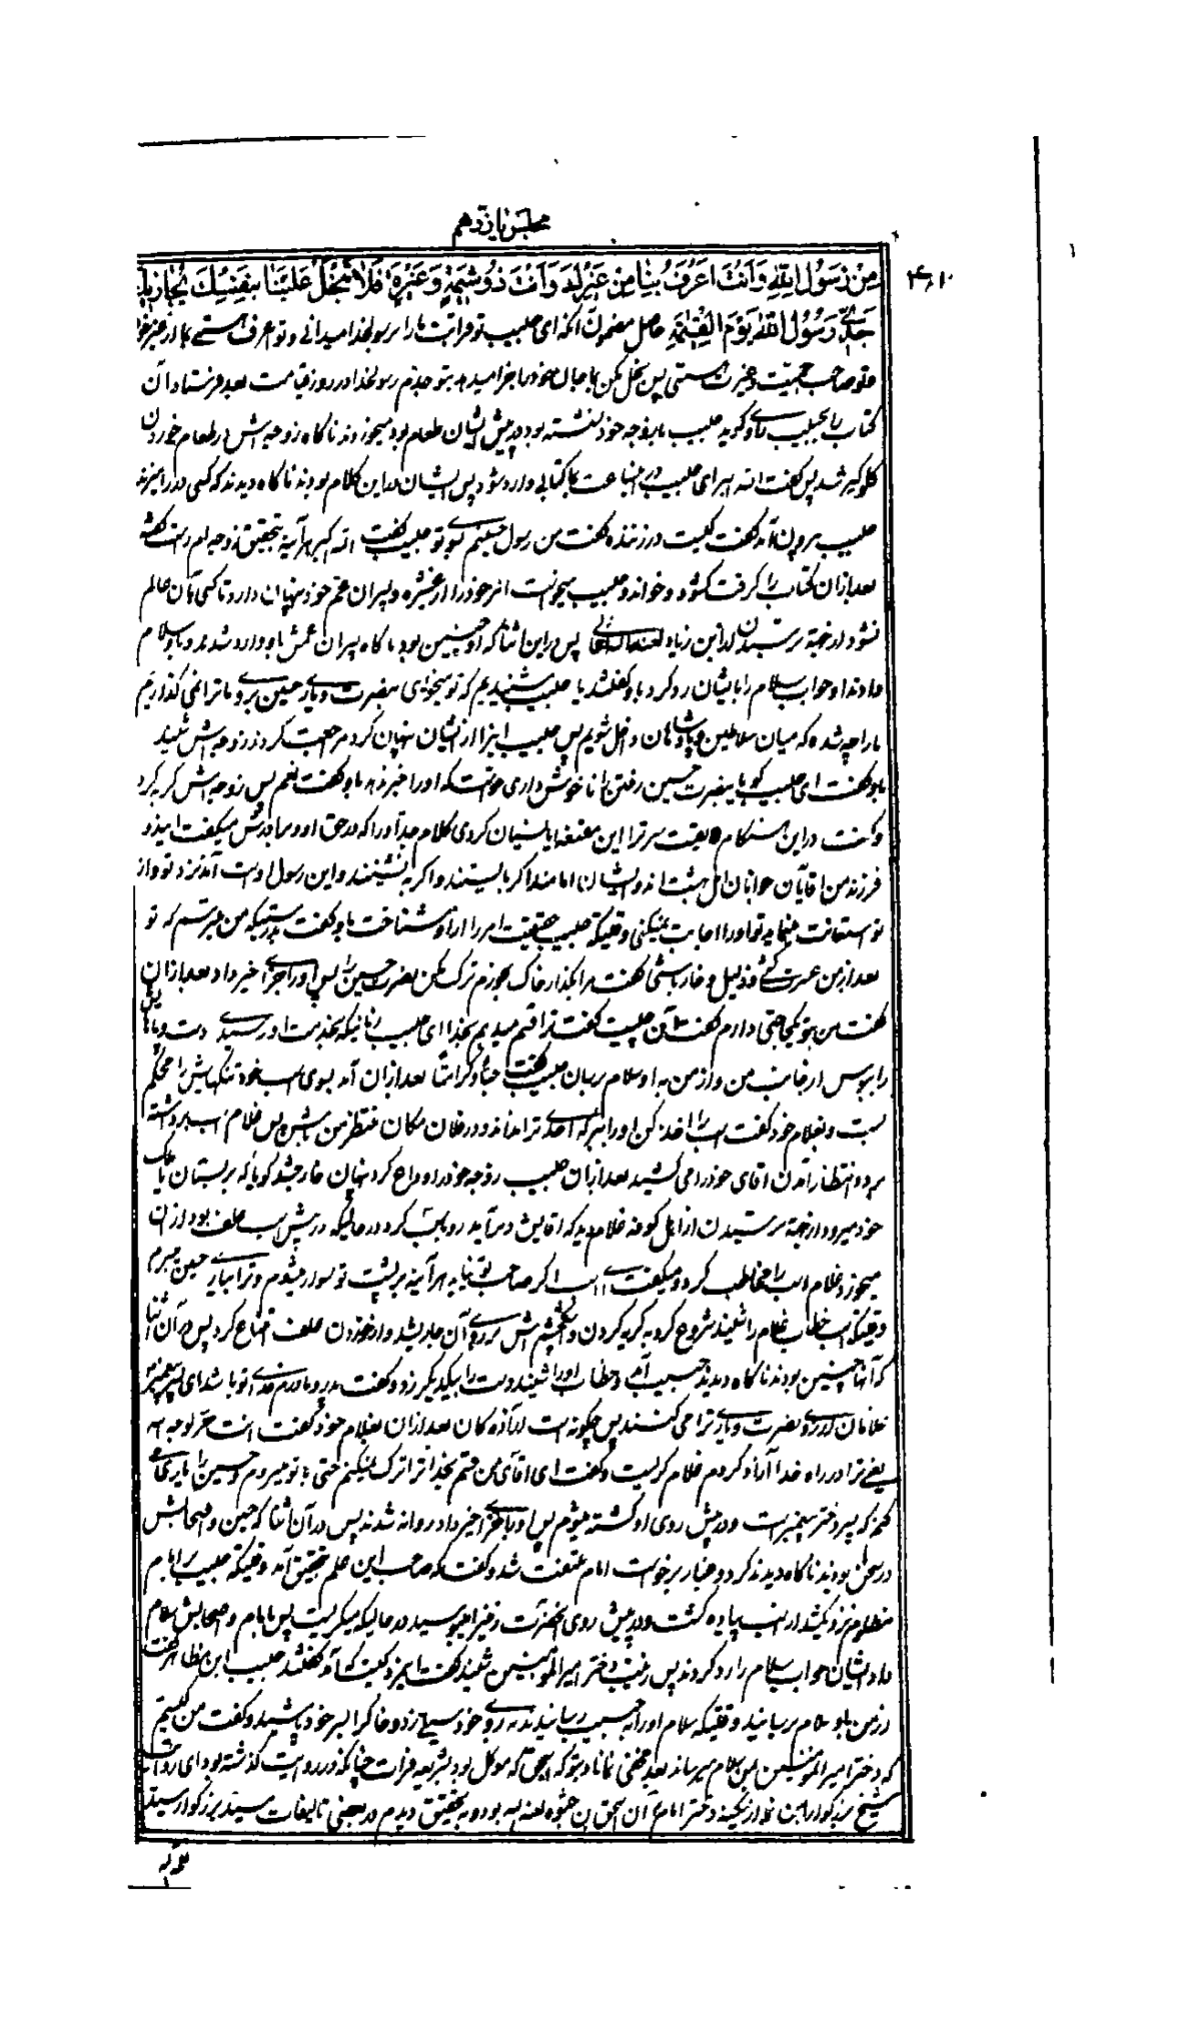 مجلس یازدهم
مِنْ رَسُولِ اللهِ وَاَنْتَ اَعْرَفُ بِنَا مِنْ غَيْرِكَ وَاَنْتَ ذُو شِيمَةٍ وَغَيْرَةٍ فَلَا تَبْخَلْ عَلَيْنَا بِنَفْسِكَ يُجَازِيكَ
جَدِّي رَسُولُ اللهِ يَوْمَ الْقِيمَةِ حاصل مضمون آنکه ای حبیب تو قرابت ما را برسولخدا میدانی و تو اعرف هستی بما از غیر خود
و تو صاحب حمیت و غیرت هستی پس بخل مکن بما بجان خود را جزا میدهد بتو جدم رسولخدا در روز قیامت بعد فرستاد آن
کتاب را بحبیب راوی گوید حبیب با زوجه خود نشسته بود و در پیش ایشان طعام بود میخوردند ناگاه زوجه‌اش در طعام خوردن
گلوگیر شد پس گفت الله اکبر ای حبیب در این ساعت بما کتابی وارد شود پس ایشان در این کلام بودند ناگاه دیدند که کسی در را میزند
حبیب بیرون آمد گفت کیست در زننده گفت من رسول حسینم بسوی تو حبیب گفت الله اکبر هر آینه بتحقیق زوجه‌ام راست گفته
بعد از آن کتاب را گرفت گشود و خواند و حبیب میخواست امر خود را از عشیره و پسران عم خود پنهان دارد تا کسی بآن عالم
نشود از جهة ترسیدن از ابن زیاد پس در این اثنا که او چنین بود ناگاه پسران عمش باو وارد شدند و باو سلام
دادند او جواب سلام را بایشان رد کرد باو گفتند یا حبیب شنیدیم که تو میخواهی بنصرت و یاری حسین بروی و ما ترا نمی‌گذاریم
ما را چه شده که میان سلاطین و پادشاهان داخل شویم پس حبیب اینرا از ایشان پنهان کرد مراجعت کردند زوجه‌اش شنید
باو گفت ای حبیب گویا بنصرت حسین رفتن را ناخوش داری خواست که او را خبر ندهد باو گفت نعم پس زوجه‌اش گریه کرد
و گفت در این هنگام سر ترا این مقنعه آیا نسیان کردی کلام جد او را که در حق او و برادرش میگفت این دو
فرزند من آقایان جوانان اهل بهشت‌اند و ایشان امامند اگر بایستند و اگر بنشینند و این رسول اوست آمد نزد تو و از
تو استعانت مینماید تو او را اجابت نمیکنی وقتیکه حبیب حقیقت امر را از او شناخت باو گفت بدرستیکه من میترسم که تو
بعد از من ذلیل و خار باشی گفت مرا بگذار خاک بخورم ترک مکن نصرت حسین را پس او را جزای خیر داد بعد از آن
گفت من بتو یک حاجتی دارم گفت آن چیست گفت ترا قسم میدهم بخدا ای حبیب زمانیکه بخدمت او رسیدی دست و پاهایش
را ببوس از جانب من و از من به او سلام برسان حبیب گفت حباً و کرامتاً بعد از آن آمد بسوی اسب خود تنگهایش را محکم
بست و بغلام خود گفت اسب را اخذ کن او را ببر که احدی ترا نداند و در فلان مکان منتظر من باش پس غلام اسب برداشته
برد و انتظار آمدن آقای خود را می کشید بعد از آن حبیب زوجه خود را وداع کرد پنهان خارج شد گویا که بر بستان یا ملک
خود میرود از جهة ترسیدن از اهل کوفه غلام دید که آقایش دیر آمد رو باسب کرد در حالیکه در پیش اسب علف بود از آن
میخورد غلام اسب را مخاطب کرد و میگفت ای اسب اگر صاحب تو نیاید هر آینه بر پشت تو سوار میشوم و ترا بیاری حسین میبرم
وقتیکه اسب خطاب غلام را شنید شروع کرد به گریه کردن و اشک چشمش بر روی آن جاری شد و از خوردن علف امتناع کرد پس در آن اثنا
که آنها چنین بودند ناگاه دیدند حبیب آمد و خطاب او را شنید دست را بیکدیگر زد و گفت پدر و مادرم فدای تو باشد ای پسر پیغمبر
غلامان اراده نصرت و یاری ترا می کنند پس چگونه است آزادگان بعد از آن بغلام خود گفت انت حر لوجه الله
یعنی ترا در راه خدا آزاد کردم غلام گریست و گفت ای آقای من قسم بخدا ترا ترک نمیکنم حتی با تو میروم و حسین را یاری
کنم که پسر دختر پیغمبر است و در پیش روی او کشته میشوم پس او را جزای خیر داد روانه شدند پس در آن اثنا که حسین و اصحابش
در سخن بودند ناگاه دیدند گرد و غبار برخاست امام ملتفت شد و گفت که صاحب این علم بتحقیق آمد وقتیکه حبیب با امام
مظلوم نزدیک شد از اسب پیاده گشت و در پیش روی آنحضرت زمین را میبوسید در حالیکه میگریست پس بامام و اصحابش سلام
داد ایشان جواب سلام را رد کردند پس زینب دختر امیر المؤمنین شنید گفت این مرد کیست که آمد گفتند حبیب ابن مظاهر گفت
از من باو سلام برسانید وقتیکه سلام او را به حبیب رسانیدند به روی خود سیلی زد و خاک را بسر خود پاشید و گفت من کیستم
که دختر امیر المؤمنین بمن سلام میرساند بعد مخفی نماناد بتو که اسحق که موکل بود بشریعه فرات چنانکه در روایت گذشته بود ای روایت
شیخ بزرگوار ابن نما از سکینه دختر امام ع آن اسحق بن حثوه لعنه الله بوده و به تحقیق دیدم در بعضی تالیفات سید بزرگوار سید